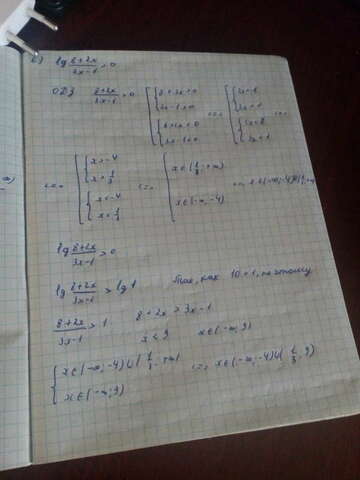 б) lg 8+2x / 3x-1 > 0
ОДЗ 8+2x / 3x-1 > 0 [ { 8+2x>0 3x-1>0 { 8+2x<0 3x-1<0 <=> [ { 2x>-8 3x>1 { 2x<-8 3x<1
<=> [ { x>-4 x>1/3 { x<-4 x<1/3 <=> [ x∈(1/3;+∞) x∈(-∞;-4) <=> x∈(-∞;-4)∪(1/3;+∞)
lg 8+2x / 3x-1 > 0
lg 8+2x / 3x-1 > lg 1 Так, как 10>1, поэтому
8+2x / 3x-1 > 1 8+2x > 3x-1
x < 9 x∈(-∞;9)
{ x∈(-∞;-4)∪(1/3;+∞) x∈(-∞;9) <=> x∈(-∞;-4)∪(1/3;9)